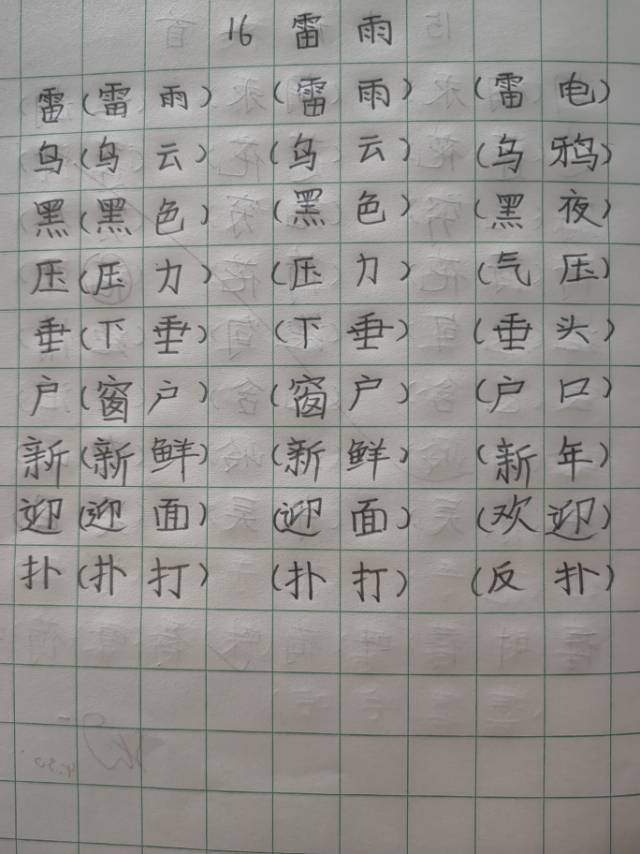 16 雷雨
雷(雷雨) (雷雨) (雷电)
乌(乌云) (乌云) (乌鸦)
黑(黑色) (黑色) (黑夜)
压(压力) (压力) (气压)
垂(下垂) (下垂) (垂头)
户(窗户) (窗户) (户口)
新(新鲜) (新鲜) (新年)
迎(迎面) (迎面) (欢迎)
扑(扑打) (扑打) (反扑)